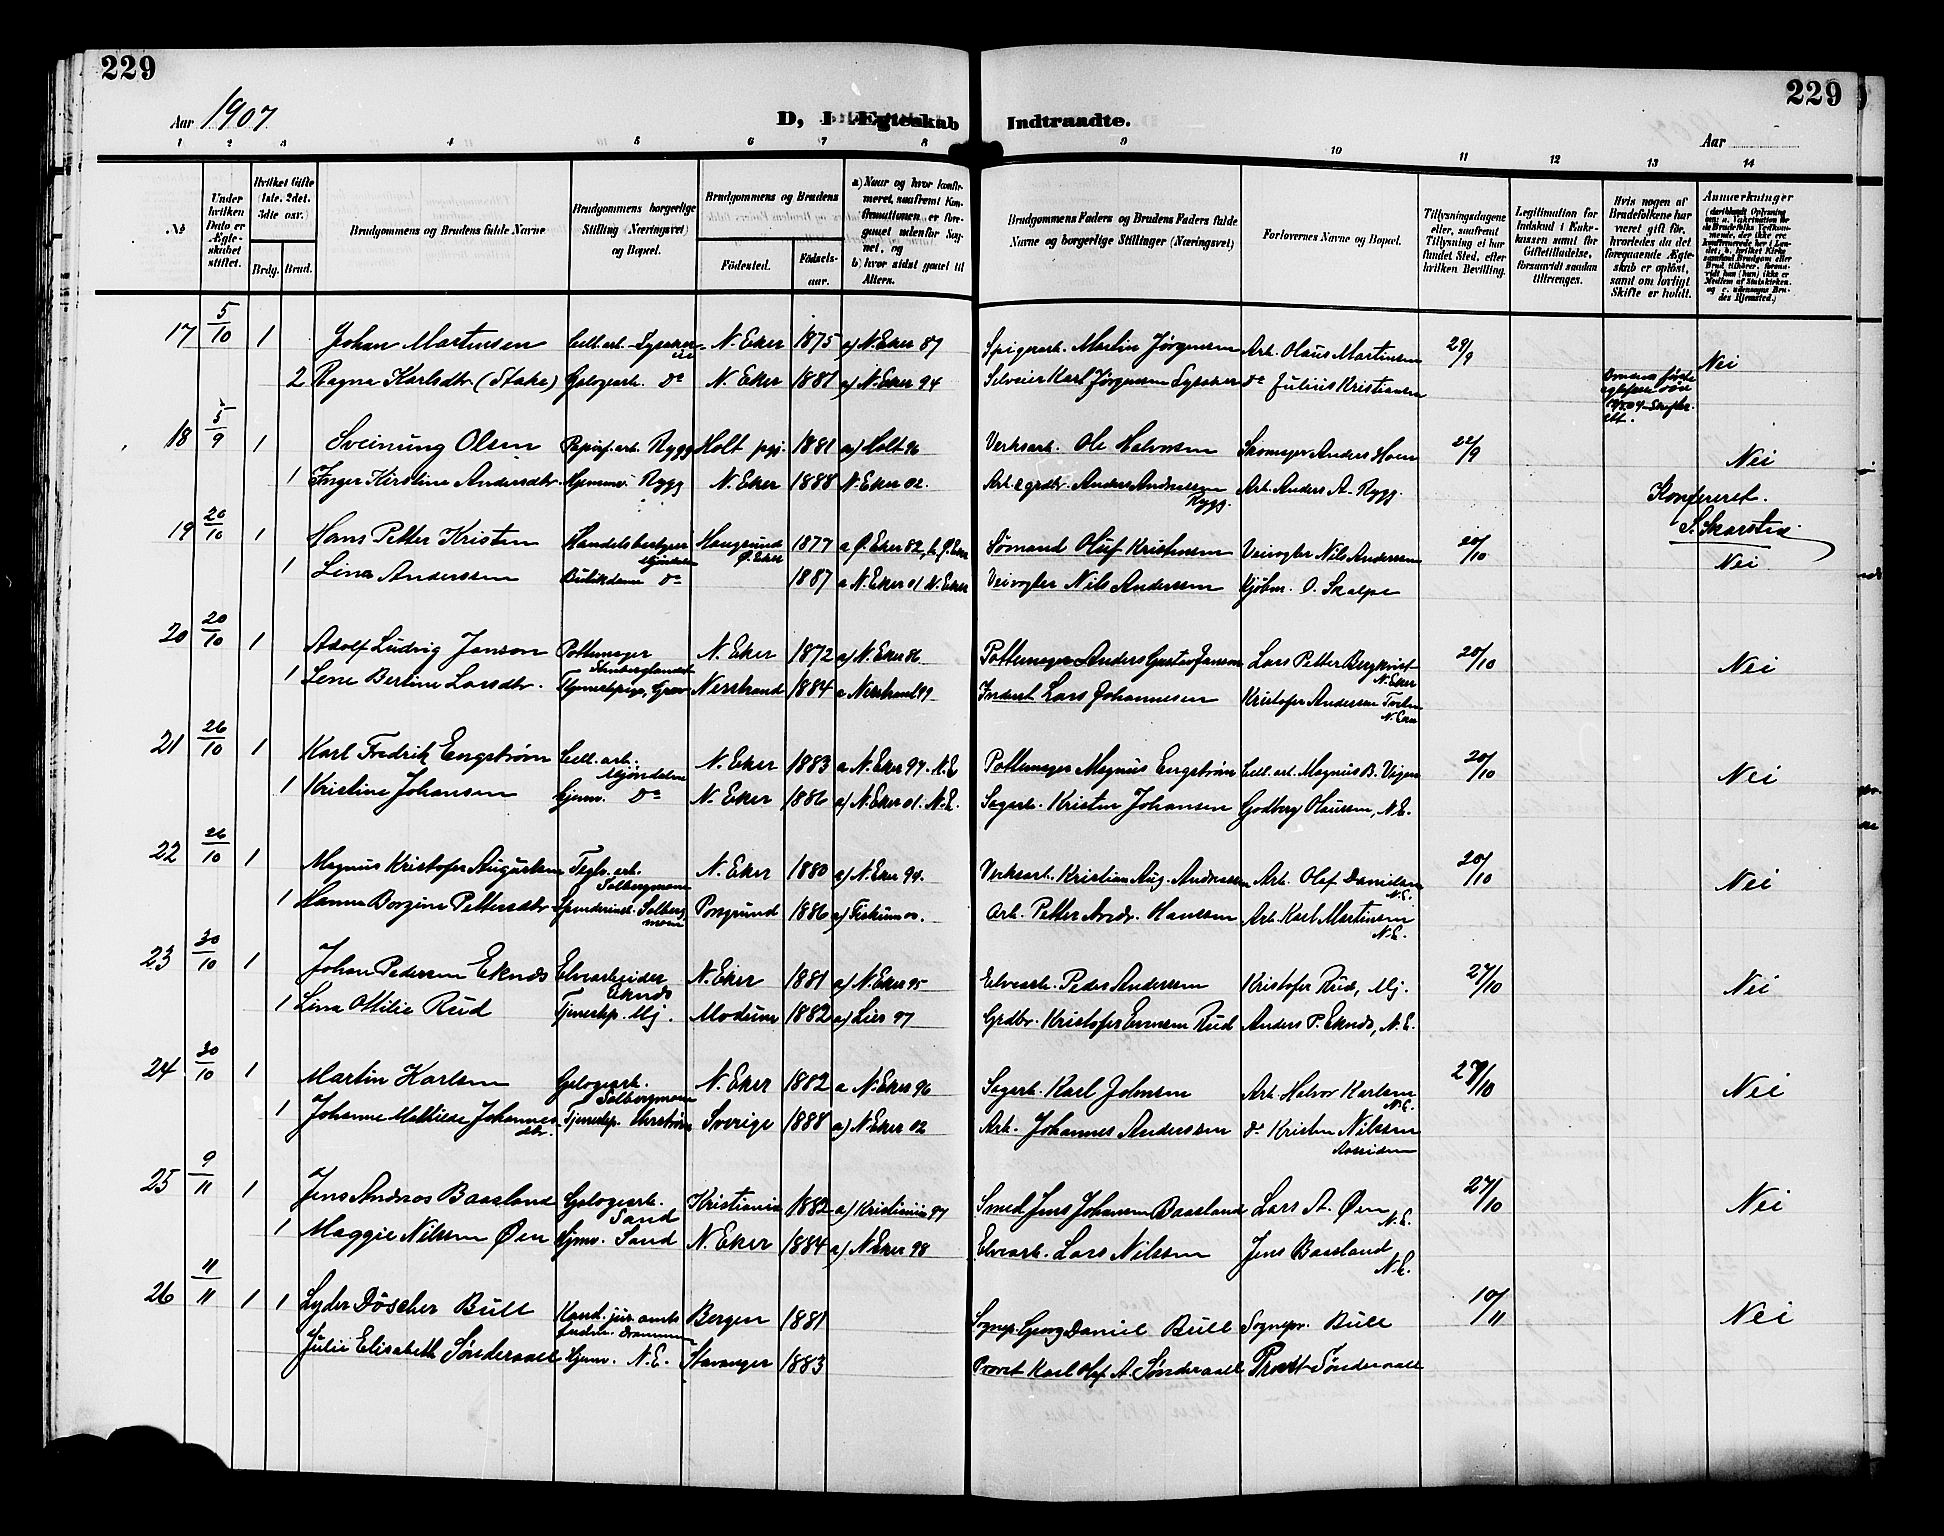 229
229
Aar 1907.
D, I Ægteskab Indtraadte.
Aar
1 2 3 4 5 6 7 8 9 10 11 12 13 14
№
Under hvilken Dato er Ægteskabet stiftet.
Hvilket Gifte (1ste, 2det, 3die osv.)
Brdg. Brud.
Brudgommens og Brudens fulde Navne
Brudgommens borgerlige Stilling (Næringsvei) og Bopæl.
Brudgommens og Brudens
Födested. Födselsaar.
a) Naar og hvor konfirmeret, saafremt Konfirmationen er foregaaet udenfor Sognet, og
b) hvor sidst gaaet til Alters.
Brudgommens Faders og Brudens Faders fulde Navne og borgerlige Stillinger (Næringsvei)
Forlovernes Navne og Bopæl.
Tillysningsdagene eller, saafremt Tillysning ei har fundet Sted, efter hvilken Bevilling.
Legitimation for Indskud i Enkekassen samt for Giftetilladelse, forsaavidt saadan tiltrænges.
Hvis nogen af Brudefolkene har været gift før, hvorledes da det foregaaende Ægteskab er opløst, samt om lovligt Skifte er holdt.
Anmærkninger
17 5/10 1 Johan Martinsen Cell. arb. Lysaker N. Eker 1875 a) N. Eker 87 Spigerarb. Martin Jørgensen Arb. Olaus Martinsen 29/9 Nei
2 Ragna Karlsdtr. (Stake) Galogearb. do N. Eker 1881 a) N. Eker 94 Karl Jørgensen Lysaker do Julius Kristiansen
18 5/9 1 Sveinung Olsen Papirf. arb. Rygg Holt pgj. 1881 a) Holt 96 Verksarb. Ole Halvorsen Skomager Anders Hoen 22/9 Nei
1 Inger Kirstine Andersdtr. Hjemmev. Rygg N. Eker 1888 N. Eker 02. Arb. & grdbr. Anders Andreassen Rygg. Arb. Anders A. Rygg.
Konfereret.
S. Skarstein
19 20/10 1 Hans Petter Kristen Handelsbestyrer Mjøndalen Haugsund Ø. Eker 1877 a Ø. Eker 82, b. Ø. Eker Sømand Oluf Kristensen Veivogter Nils Anderssen 20/10 Nei
1 Lina Anderssen Butikdame do 1887 a N. Eker 01 N. Eker Veivogter Nils Anderssen Kjøbm. O. Skalpe
20 20/10 1 Adolf Ludvig Janson Pottemager Stenberglandet N. Eker 1872 a) N. Eker 86 Pottemager Anders Gustav Janson Lars Petter Bergkvist N. Eker 20/10 Nei
1 Lene Bertine Larsdtr. Tjenestepige, Grav Nerstrand 1884 a Nerstrand 99 Inderst Lars Johannesen Kristofer Anderssen N. Eker
21 26/10 1 Karl Fredrik Engstrøm Cell. arb. Mjøndalen N. Eker 1883 a N. Eker 97. N. E Pottemager Magnus Engstrøm Cell. arb. Magnus B. 20/10 Nei
1 Kristine Johansen Hjemv. do N. Eker 1886 a) N. Eker 01. N. E. Sagarb. Kristen Johansen Godberg Olaussen, N. E.
22 26/10 1 Magnus Kristofer Augustsen Teglv. arb. Solbergmoen N. Eker 1880 a) N. Eker 94. Verksarb. Kristian Aug. Andreassen Arb. Olaf Danielsen N. E. 20/10 Nei
1 Hanna Borgine Pettersdtr. Spinderiarb. Solbergmoen Porsgrund 1886 a) Fiskum 00. Arb. Petter Andr. Hanssen Arb. Karl Martinsen N. E.
23 30/10 1 Johan Pedersen Eknes Elvearbeider Eknes N. Eker 1881 a) N. Eker 95 Elvearb. Peder Anderssen Kristofer Rud, Mj. 27/10 Nei
1 Lina Otilie Rud Tjenestep. Mj. Modum 1882 a) Lier 97 Grdbr. Kristofer Evensen Rud Anders P. Eknes, N. E.
24 30/10 1 Martin Karlsen Galogearb. Solbergmoen N. Eker 1882 a N. Eker 96 Sagarb. Karl Johnsen Arb. Halvor Karlsen N. E. 27/10 Nei
1 Johanne Mathilde Johannesdtr. Tjenestep. Sverige 1888 a) N. Eker 02 Arb. Johannes Anderssen do Kristen Nilssen Aassiden
25 9/11 1 Jens Andreas Baasland Galogearb. Sand Kristiania 1882 a) Kristiania 97 Smed Jens Johansen Baasland Lars A. Øen N. E. 27/10 Nei
1 Maggie Nilssen Øen Hjmv. Sand N. Eker 1884 a) N. Eker 98 Elvearb. Lars Nilssen Jens Baasland N. E.
26 11/11 1 1 Lyder Döscher Bull Kand. jur. Drammen Bergen 1881 Sognep. Georg Daniel Bull Sognepr. Bull 10/11 Nei
Julie Elisabeth Sønderaal Hjemv. N. E. Stavanger 1883 Provst Karl Olaf A. Sønderaal Provst Sønderaal